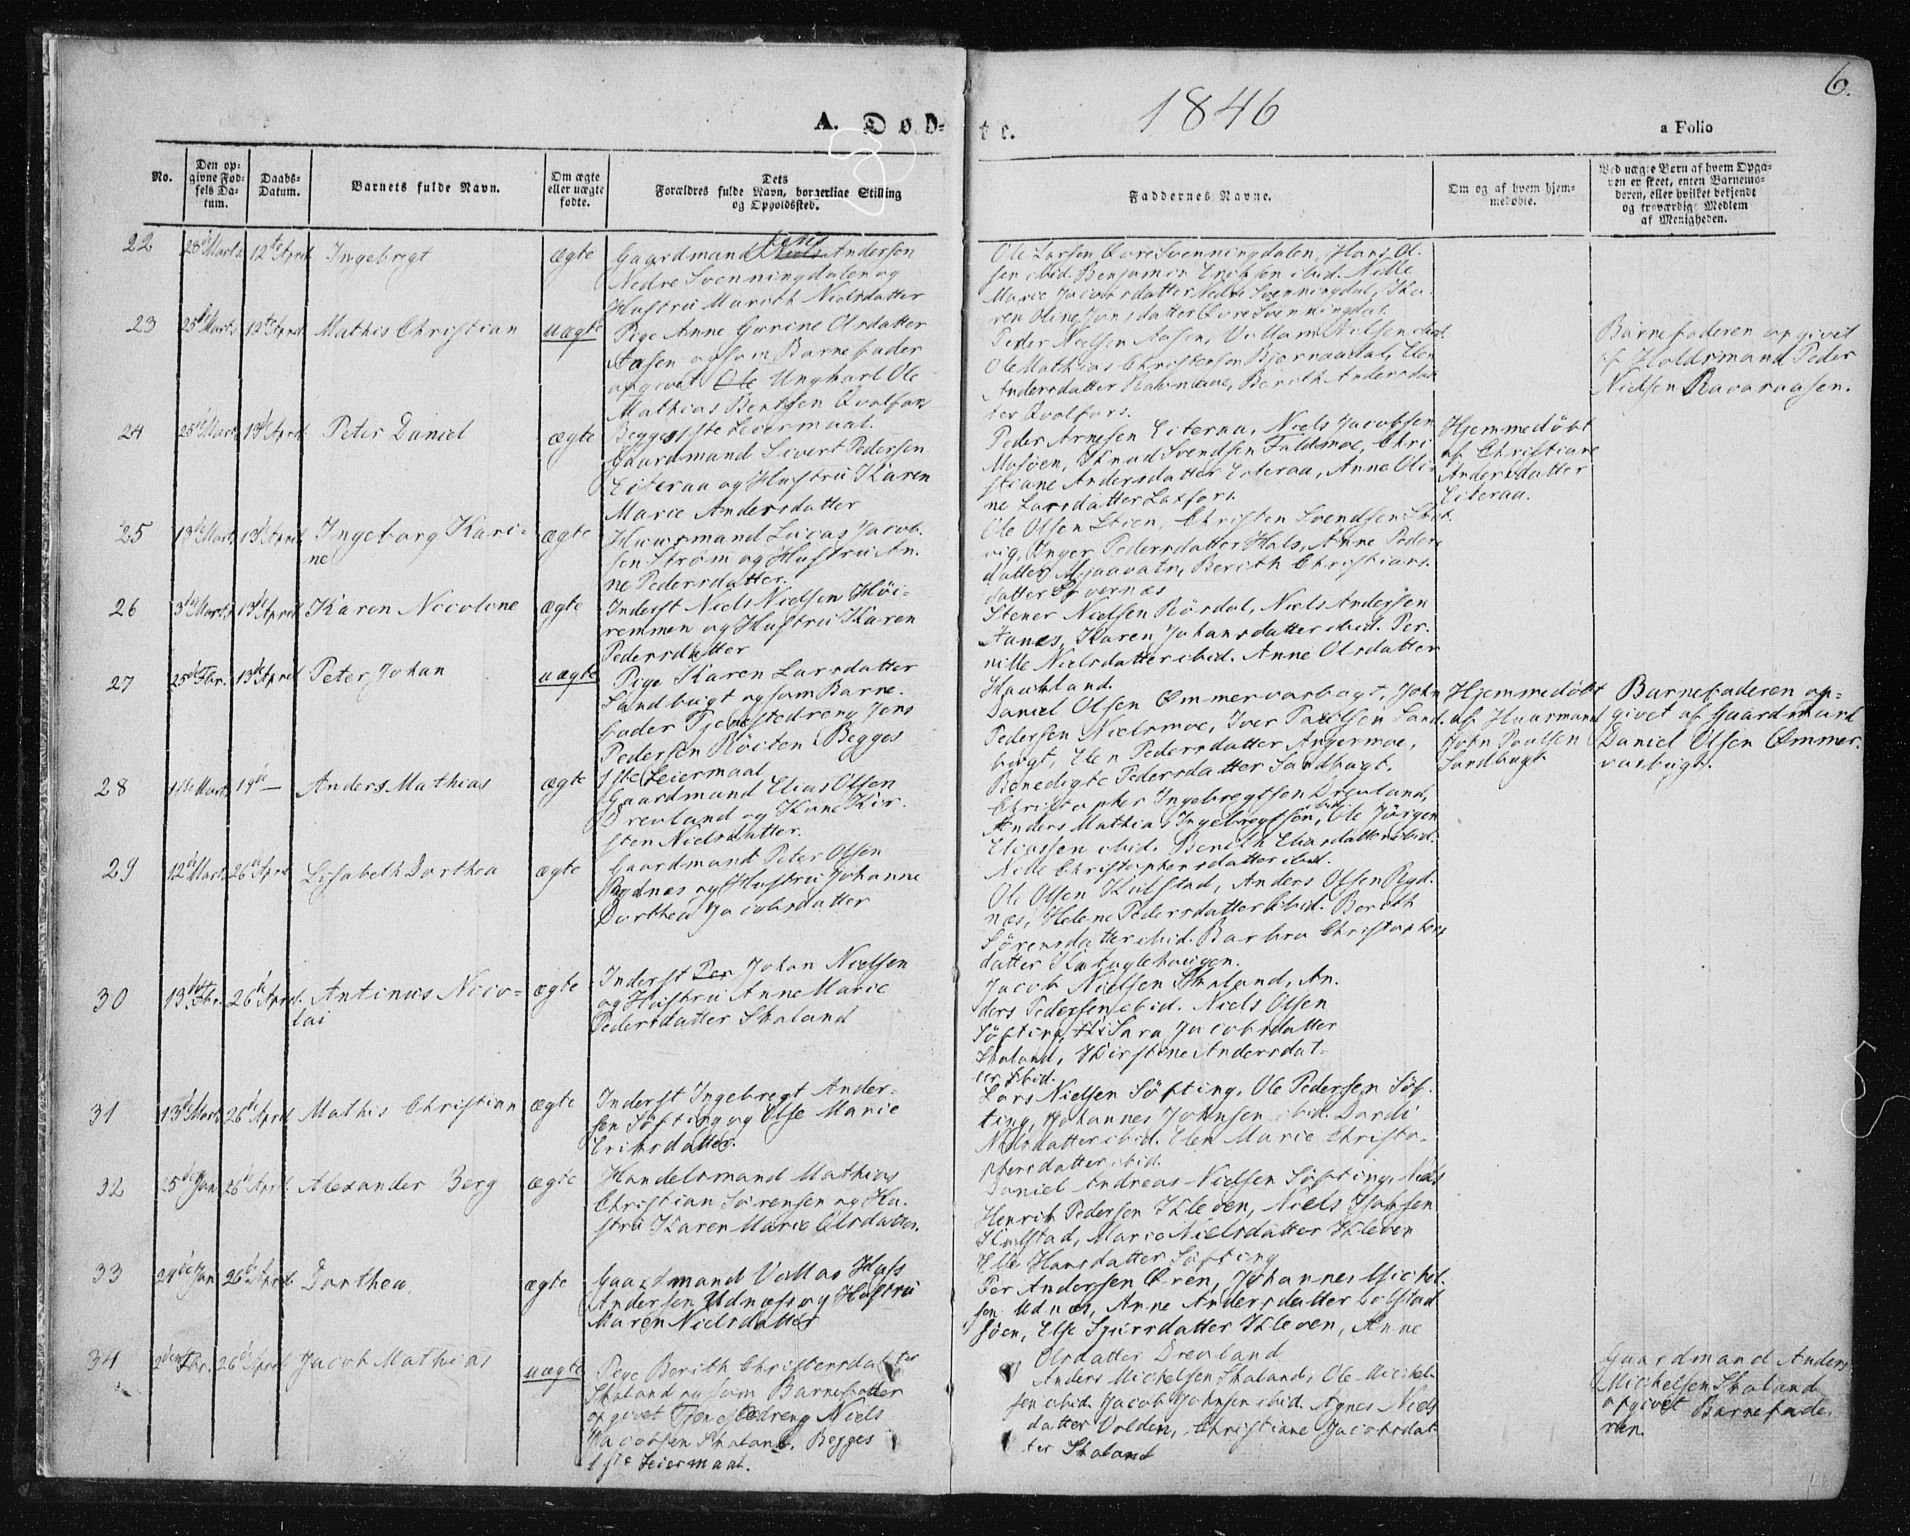 1846
6.
A. Døb-
te.
a Folio
No.
Den op-
givne Fød-
sels Da-
tum.
Daabs-
Datum.
Barnets fulde Navn.
Om ægte
eller uægte
fødte.
Dets
Forældres fulde Navn, borgerlige Stilling
og Opholdssted.
Faddernes Navne.
Om og af hvem hjem-
medøbte.
Ved uægte Børn af hvem Opga-
ven er skeet, enten Barnemo-
deren, eller hvilket bekjendt
og troværdig Medlem
af Menigheden.
22
28de Marts
12te April
Ingebregt
ægte
Gaardmand Andersen
Nedre Svenningdalen og
Hustru Marith Nielsdatter
Ole Larsen Øvre Svenningdalen, Hans Ol-
sen ibid. Benjamin Erichsen ibid. Nille
Marie Jacobsdatter Nedre Svenningdal, Ka-
ren Oline Jonsdatter Øvre Svenningdal.
23
25de Marts
12te April
Mathis Christian
uægte
Pige Anne Gurine Olsdatter
Aasen og som Barnefader
opgivet Ole Ungkarl Ole
Mathias Bentsen Qvalfors
Begges 1ste Leiermaal.
Peder Nielsen Aasen, Nielsen ibid.
Ole Mathias Christensen Bjørnaadal, Elen
Andersdatter Berith Andersdat-
ter Qvalfors.
Barnefaderen opgivet
af Holdsmand Peder
Nielsen Ravaraasen.
24
25de Marts
13de April
Peter Daniel
ægte
Gaardmand Sivert Pedersen
Eiteraa og Hustru Karen
Marie Andersdatter
Peder Arnesen Eiteraa, Niels Jacobsen
Mosøen, Knud Svendsen Faldmoe, Chri-
stiane Andersdatter Eiteraa, Anne Oli-
ne Larsdatter Laxfors.
Hjemmedøbt
af Christiane
Andersdatter
Eiteraa.
25
13de Marts
13de April
Ingeborg Kari-
ne
ægte
Huusmand Lucas Jacob-
sen Strøm og Hustru An-
ne Pedersdatter.
Ole Olsen Steen, Christen Svendsen
vig, Inger Pedersdatter Hals, Anne Peders-
datter Mjaavatn, Berith Christians-
datter
26
3die Marts
13de April
Karen Nicoline
ægte
Inderst Niels Nielsen Høi-
remmen og Hustru Karen
Pedersdatter
Stener Nielsen Rørdal, Niels Andersen
Fanes, Karen Johansdatter ibid. Per-
nille Nielsdatter ibid. Anne Olsdatter
27
25de Fbr.
13de April
Peter Johan
uægte
Pige Karen Larsdatter
Sandbugt og som Barne-
fader Tjenestedreng Jens
Pedersen Begges
1ste Leiermaal
Daniel Olsen Ømmervasbugt, John
Pedersen Nielsmoe, Iver Paulsen Sand-
bugt, Elen Pedersdatter Angermoe,
Benedigte Pedersdatter Sandbugt.
Hjemmedøbt
af Huusmand
John Poulsen
Sandbugt
Barnefaderen op-
givet af Gaardmand
Daniel Olsen Ømmer-
vasbugt.
28
1ste Marts
19de —
Anders Mathias
ægte
Gaardmand Elias Olsen
Drevland og Kone Kir-
sten Nielsdatter.
Christopher Ingebregtsen Drevland,
Anders Mathias Ingebregtsen ibid, Ole Jørgen
Eliassen ibid. Berith Eliasdatter ibid.
Nille Christophersdatter ibid.
29
12te Marts
26de April
Lisabeth Dorthea
ægte
Gaardmand Peter Olsen
Rydnæs og Hustru Johanne
Dorthea Jacobsdatter
Ole Olsen Kulstad, Anders Olsen Ryd-
næs, Helene Pedersdatter ibid. Berith
Sørensdatter ibid. Barbra Christophers
datter Katuglehaugen.
30
13de Fbr.
26de April.
Antinus Nico-
lai
ægte
Inderst Per Johan Nielsen
og Hustru Anne Marie
Pedersdatter Skaland
Jacob Nielsen Skaland, An-
ders Pedersen ibid. Niels Olsen
Søfting, Sara Jacobsdatter
Skaland, Kirstine Andersdat-
ter ibid.
31
13de Marts
26de April
Mathis Christian
ægte
Inderst Ingebregt Ander-
sen Søfting og Else Marie
Eriksdatter.
Lars Nielsen Søfting, Ole Pedersen Søf-
ting, Johannes Johnsen ibid. Dordi
Nilsdatter ibid. Elen Marie Christo-
phersdatter ibid.
32
25de Jan
26de April.
Alexander Berg
ægte
Handelsmand Mathias
Christian Sørensen og Hu-
stru Karen Marie Olsdatter.
Daniel Andreas Nielsen Søfting, Niels
Henrik Pedersen Kleven, Niels
Kulstad, Marie Nielsdatter Kleven
Else Hansdatter Søfting
33
29de Jan
26de April
Dorthea
ægte
Gaardmand
Andersen Udnæs og Hustru
Maren Nielsdatter
Per Andersen Øren, Johannes Michel-
sen Udnæs, Anne Andersdatter
søen, Else Sjursdatter Kleven, Anne
Olsdatter Drevland
34
2den Fbr.
26de April
Jacob Mathias
uægte
Pige Berith Christensdatter
Skaland og som Barnefader
opgivet Tjenestedreng Niels
Jacobsen Skaland. Begges
1ste Leiermaal.
Anders Michelsen Skaland, Ole Michel-
sen ibid. Jacob Johnsen ibid. Agnes Niels
datter Volden, Christiane Jacobsdat-
ter Skaland
Gaardmand Anders
Michelsen Skaland
opgivet Barnefade-
ren.